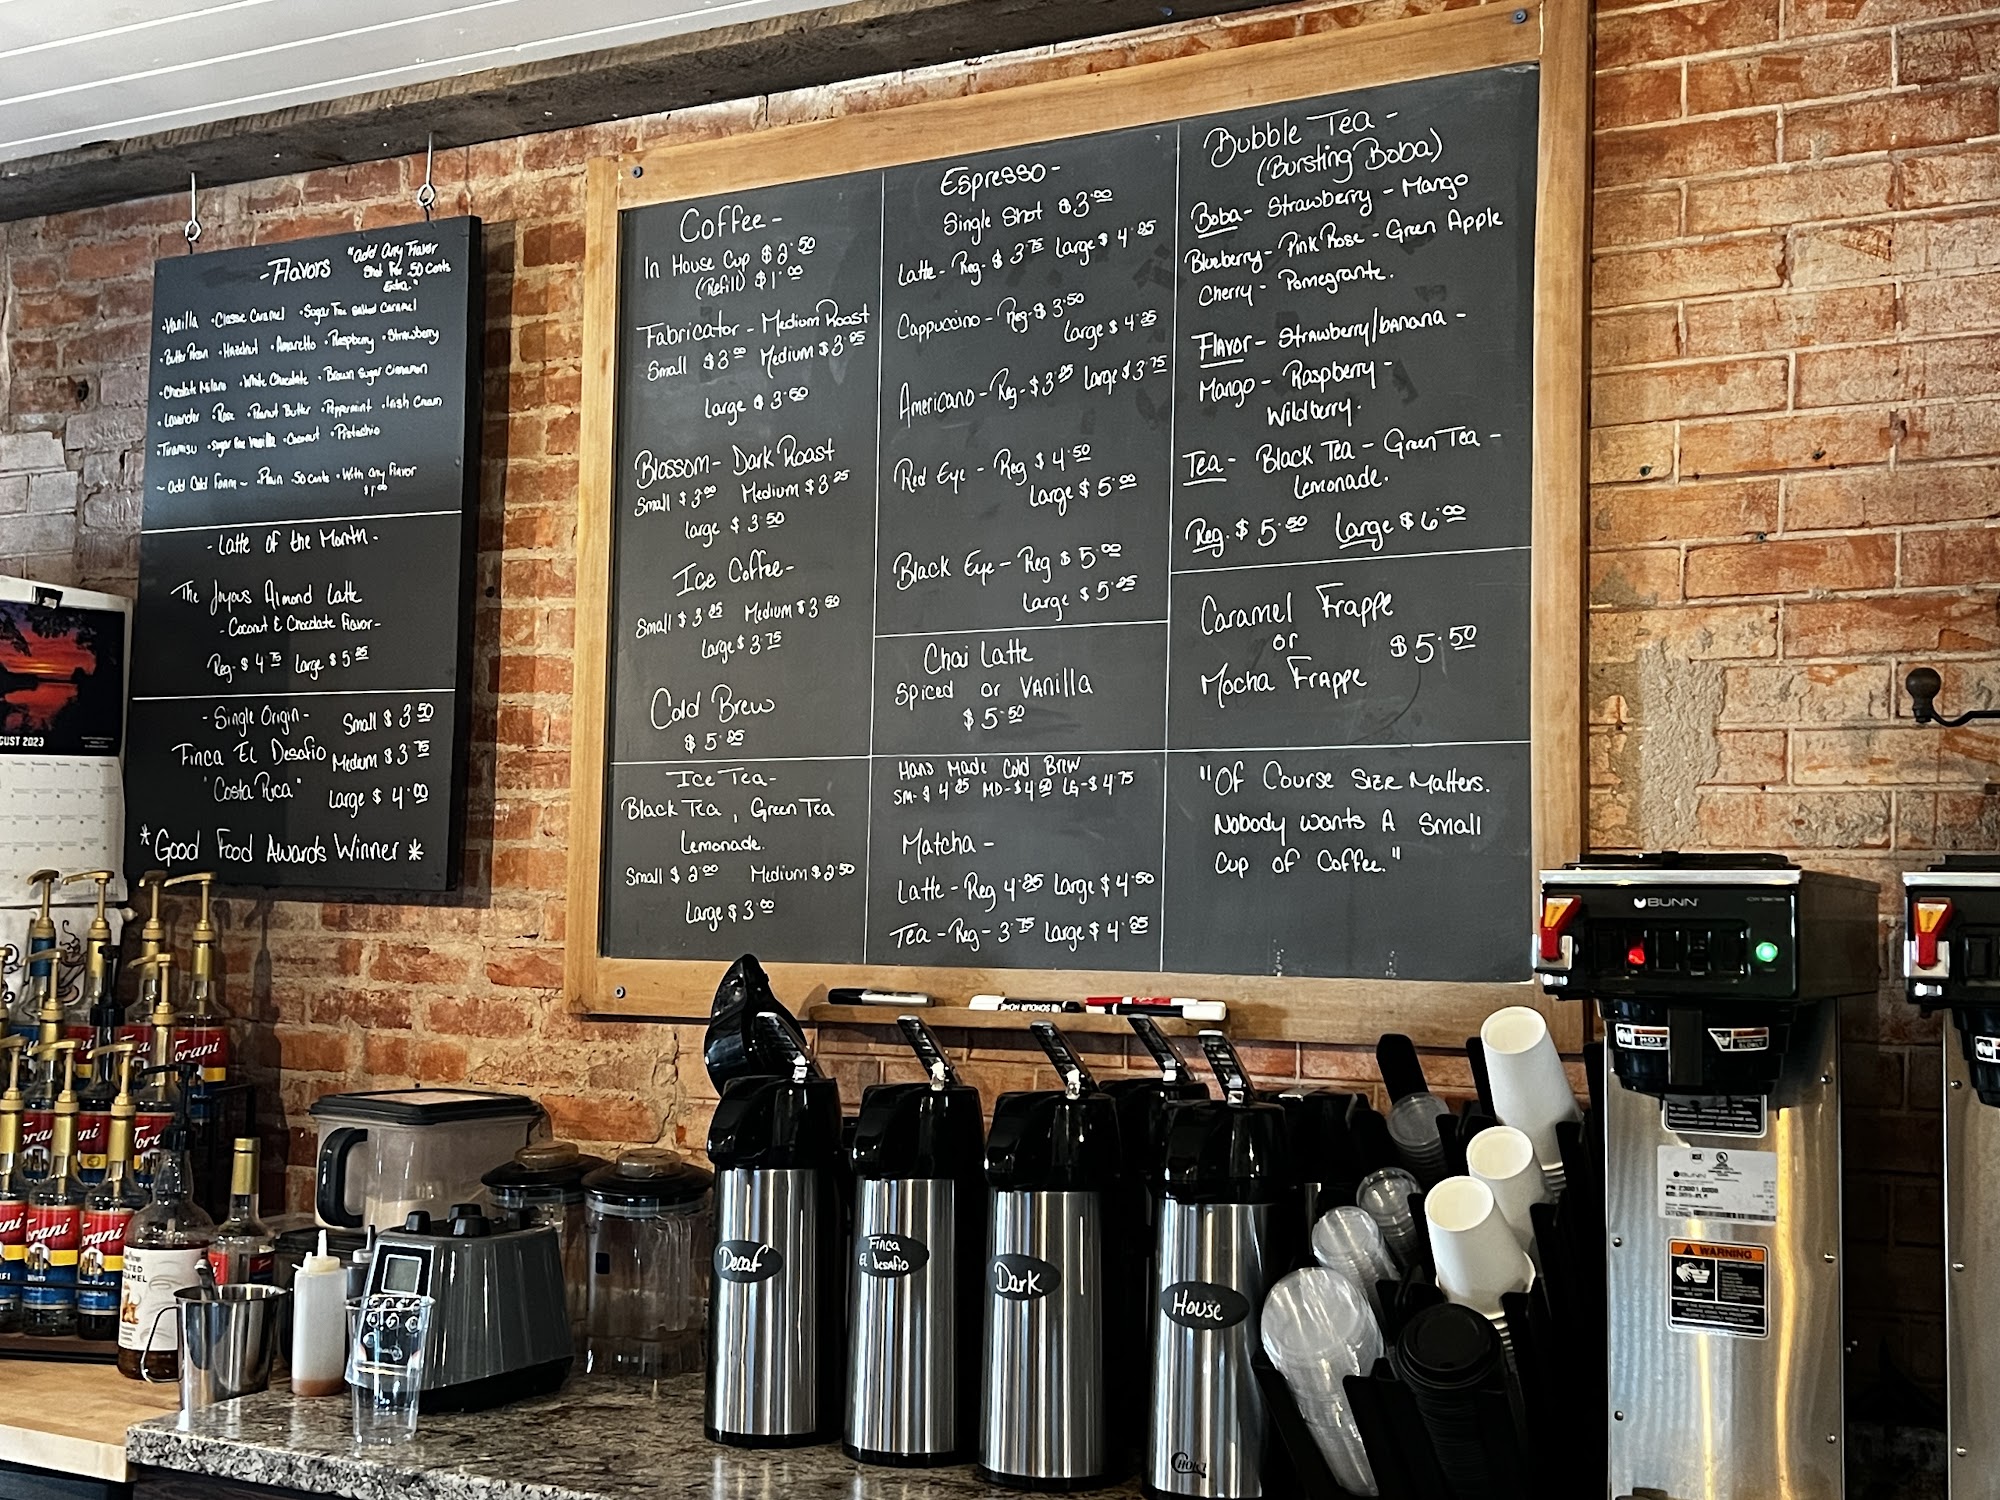 - Flavors
"add Any Flavor
Shot For .50 Cents
Extra."
• Vanilla • Classic Caramel • Sugar Free Salted Caramel
• Butter Pecan • Hazelnut • Amaretto • Raspberry • Strawberry
• Chocolate Milano • White Chocolate • Brown Sugar Cinnamon
• Lavender • Rose • Peanut Butter • Peppermint • Irish Cream
• Tiramisu • Sugar Free Vanilla • Coconut • Pistachio
~ Add Cold Foam ~ • Plain .50 cents • With any Flavor
$1.00
- Latte of the Month -
The Joyous Almond Latte
- Coconut & Chocolate Flavor -
Reg- $4.75 Large $5.25
- Single Origin -
Finca El Desafio
"Costa Rica"
Small $3.50
Medium $3.75
Large $4.00
*Good Food Awards Winner*
Coffee -
In House Cup $2.50
(Refill) $1.00
Fabricator - Medium Roast
Small $3.00 Medium $3.25
Large $3.50
Blossom - Dark Roast
Small $3.00 Medium $3.25
Large $3.50
Ice Coffee -
Small $3.25 Medium $3.50
Large $3.75
Cold Brew
$5.25
Ice Tea -
Black Tea, Green Tea
Lemonade.
Small $2.00 Medium $2.50
Large $3.00
Espresso -
Single Shot $3.00
Latte - Reg- $3.75 Large $4.25
Cappuccino - Reg- $3.50
Large $4.25
Americano - Reg- $3.25 Large $3.75
Red Eye - Reg $4.50
Large $5.00
Black Eye - Reg $5.00
Large $5.25
Chai Latte
Spiced or Vanilla
$5.50
Hand Made Cold Brew
SM- $4.25 MD- $4.50 LG- $4.75
Matcha -
Latte - Reg 4.25 Large $4.50
Tea - Reg - 3.75 Large $4.25
Bubble Tea -
(Bursting Boba)
Boba - Strawberry - Mango
Blueberry - Pink Rose - Green Apple
Cherry - Pomegrante.
Flavor - Strawberry/banana -
Mango - Raspberry -
Wildberry.
Tea - Black Tea - Green Tea -
Lemonade.
Reg. $5.50 Large $6.00
Caramel Frappe
or
Mocha Frappe
$5.50
"Of Course Size Matters.
Nobody wants A Small
Cup of Coffee."
GUST 2023
BUNN
HOT
WARNING
BUNN
Torani
Torani
Torani
Decaf
Finca
El Desafio
Dark
House
Choice